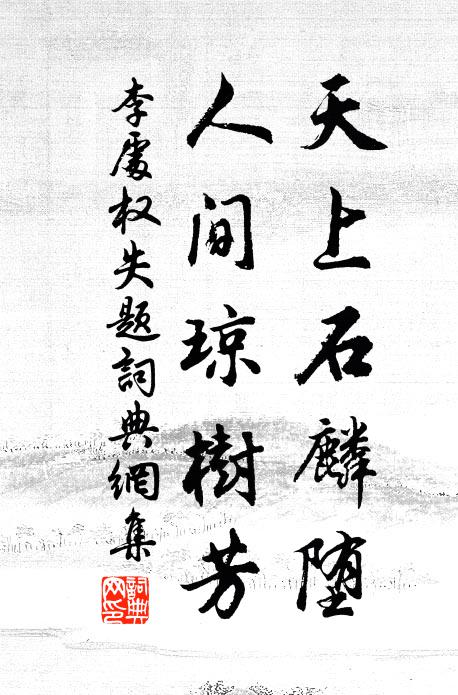 天上石麟堕
人间琼樹芳
李處权失题詞典網集
詞典网印